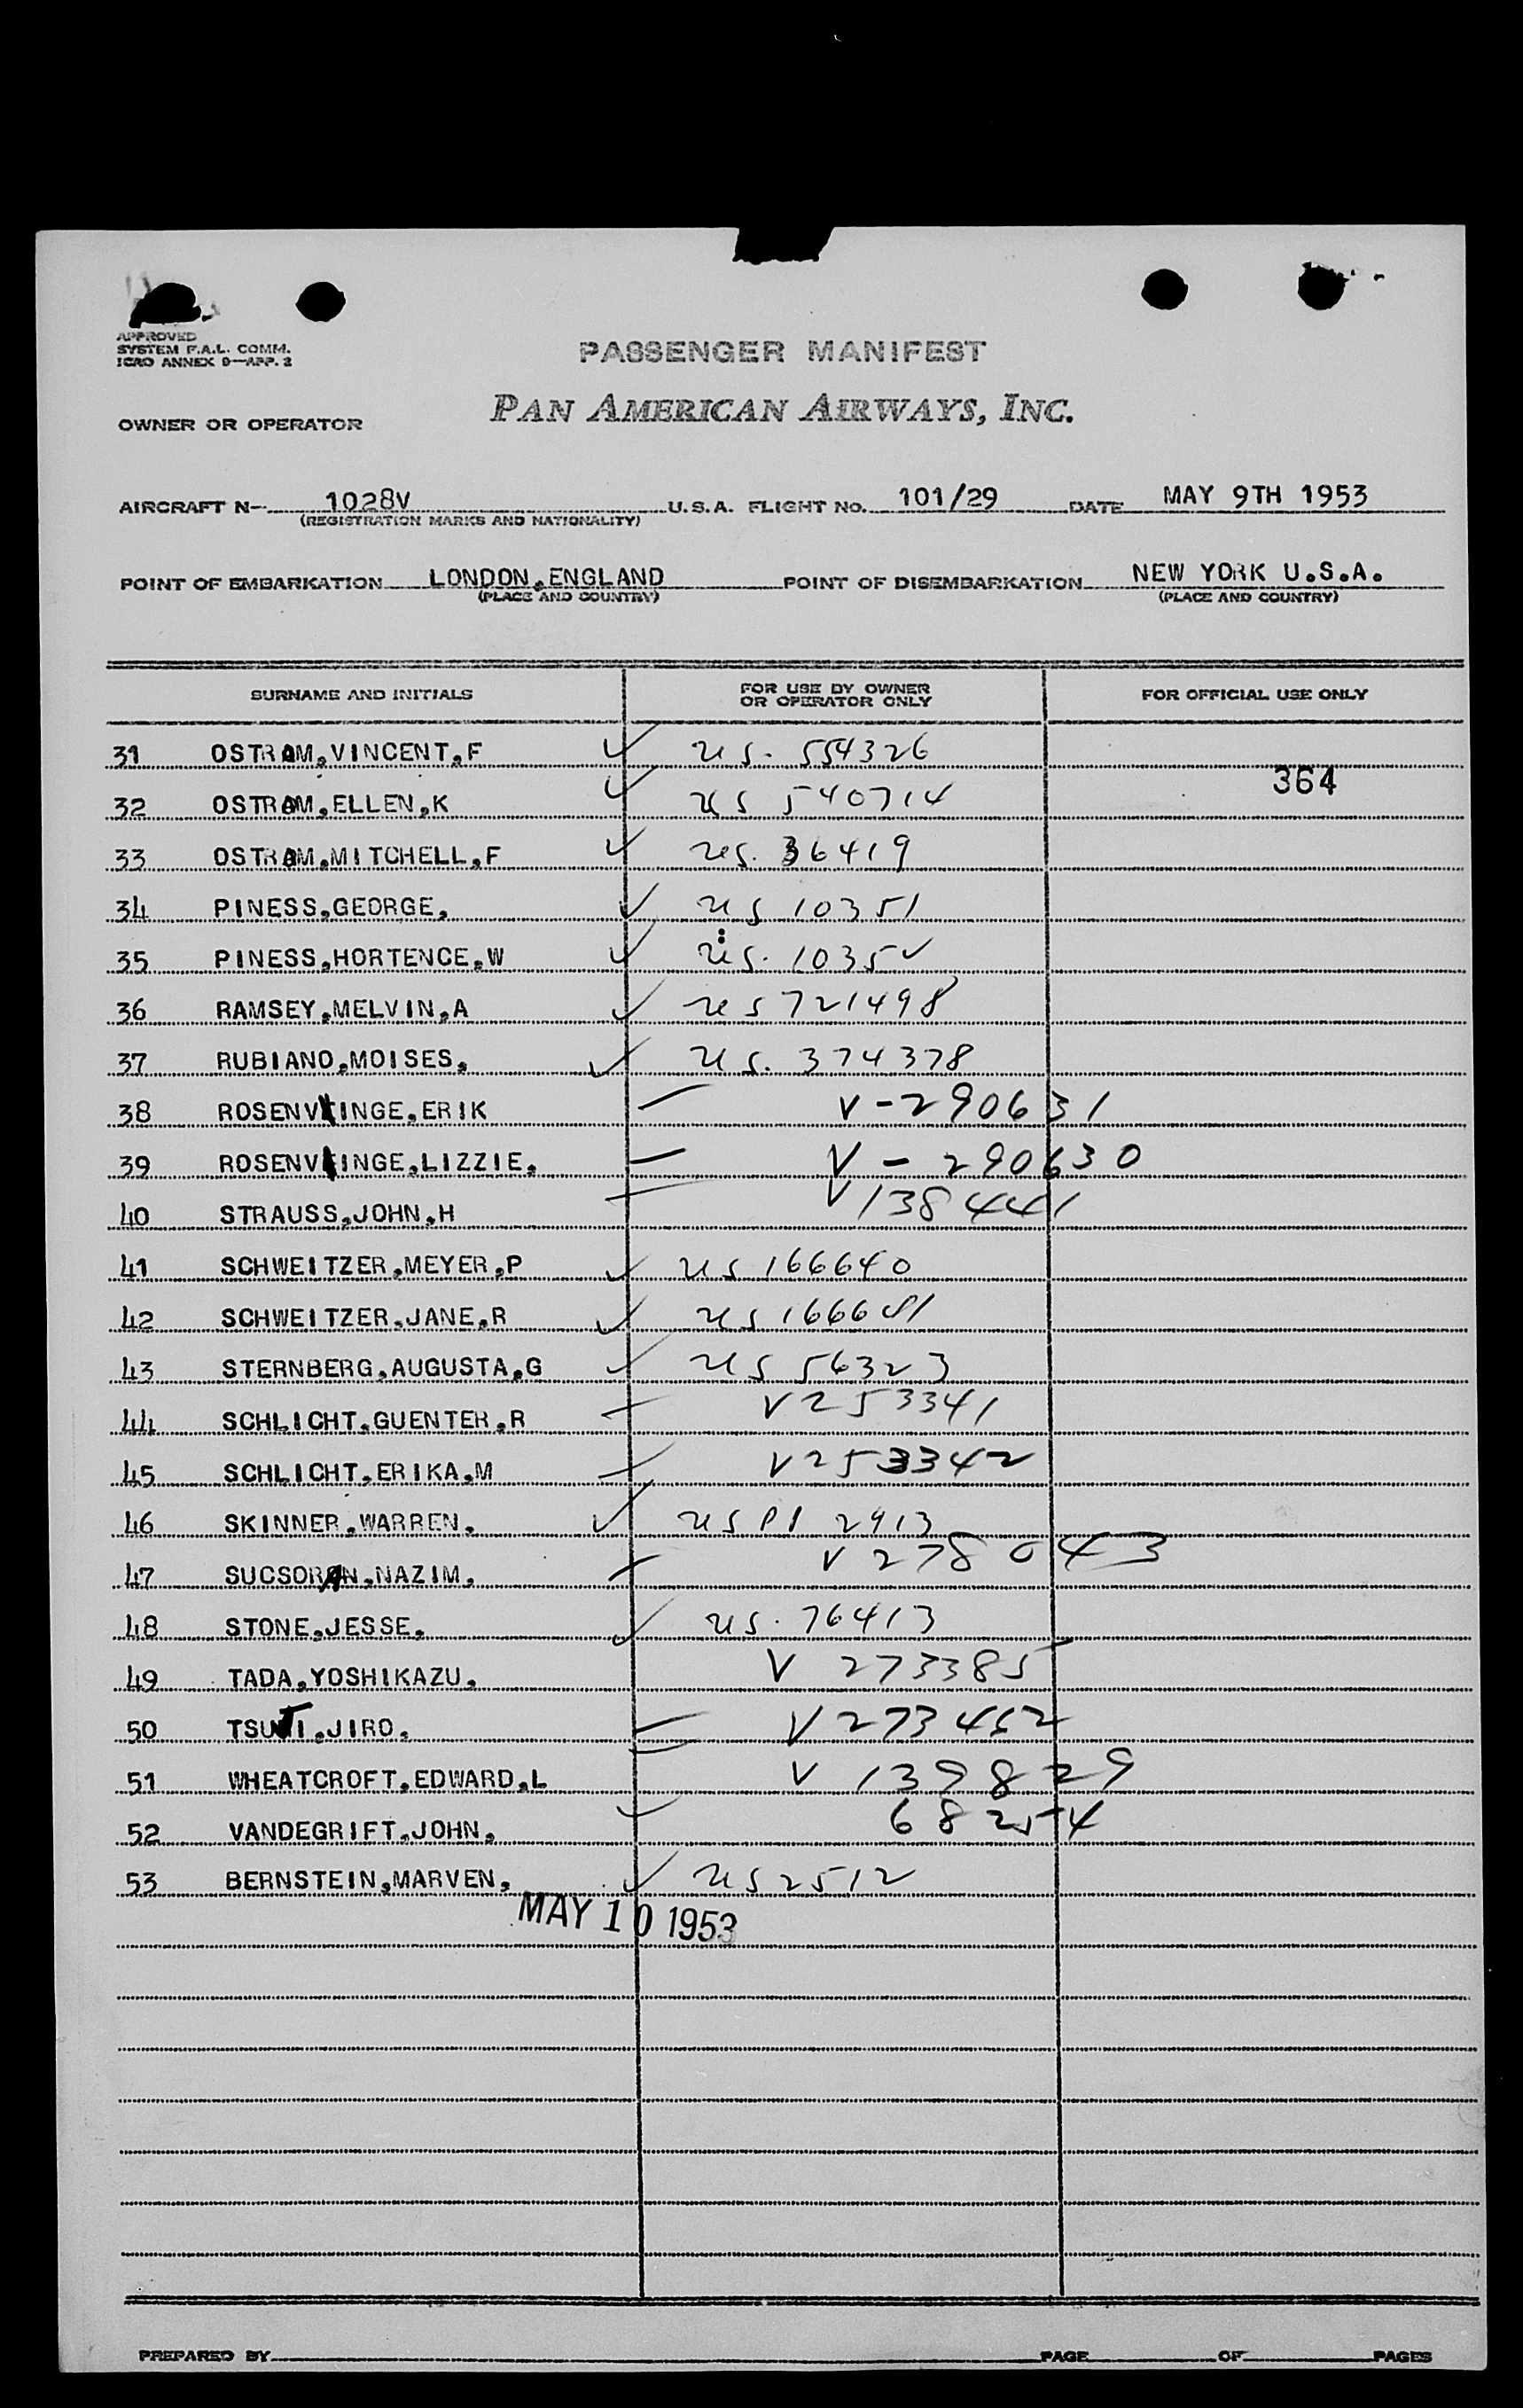 APPROVED
SYSTEM F.A.L. COMM.
ICAO ANNEX 9—APP. 2
PASSENGER MANIFEST
OWNER OR OPERATOR PAN AMERICAN AIRWAYS, INC.
AIRCRAFT N- 1028V U.S.A. FLIGHT NO. 101/29 DATE MAY 9TH 1953
(REGISTRATION MARKS AND NATIONALITY)
POINT OF EMBARKATION LONDON,ENGLAND POINT OF DISEMBARKATION NEW YORK U.S.A.
(PLACE AND COUNTRY) (PLACE AND COUNTRY)
SURNAME AND INITIALS FOR USE BY OWNER OR OPERATOR ONLY FOR OFFICIAL USE ONLY
31 OSTROM,VINCENT,F ✓ US. 554326
364
32 OSTROM,ELLEN,K ✓ US 540714
33 OSTROM,MITCHELL,F ✓ US. 36419
34 PINESS,GEORGE, ✓ US 10351
35 PINESS,HORTENCE,W ✓ US. 10352
36 RAMSEY,MELVIN,A ✓ US 721498
37 RUBIANO,MOISES, ✓ US. 374378
38 ROSENVINGE,ERIK — V-290631
39 ROSENVINGE,LIZZIE, — V-290630
40 STRAUSS,JOHN,H — V138441
41 SCHWEITZER,MEYER,P ✓ US 166640
42 SCHWEITZER,JANE,R ✓ US
43 STERNBERG,AUGUSTA,G ✓ US 56323
44 SCHLICHT,GUENTER,R — V253341
45 SCHLICHT,ERIKA,M — V253342
46 SKINNER,WARREN, ✓ US 2913
47 SUCSORAN,NAZIM, — V278043
48 STONE,JESSE, ✓ US. 76413
49 TADA,YOSHIKAZU, V 273385
50 JIRO, — V273452
51 WHEATCROFT,EDWARD,L — V 139829
52 VANDEGRIFT,JOHN, ✓ 68254
53 BERNSTEIN,MARVEN, ✓ US 2512
MAY 10 1953
PREPARED BY PAGE OF PAGES